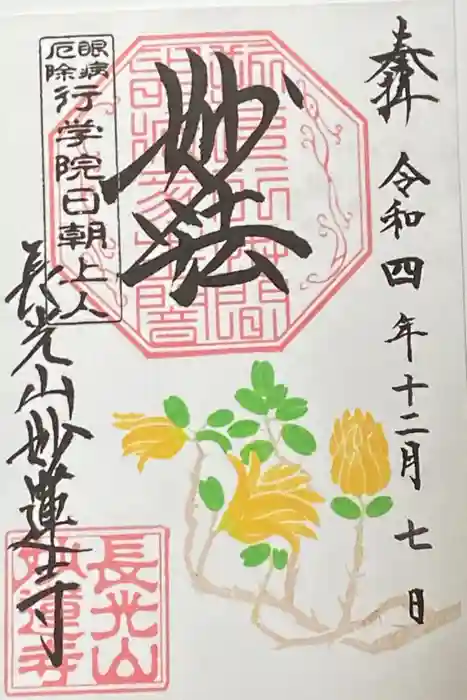 奉拝 令和四年十二月七日
妙法
眼病
厄除
行学院日朝上人
長光山妙蓮寺
長光山
妙蓮寺